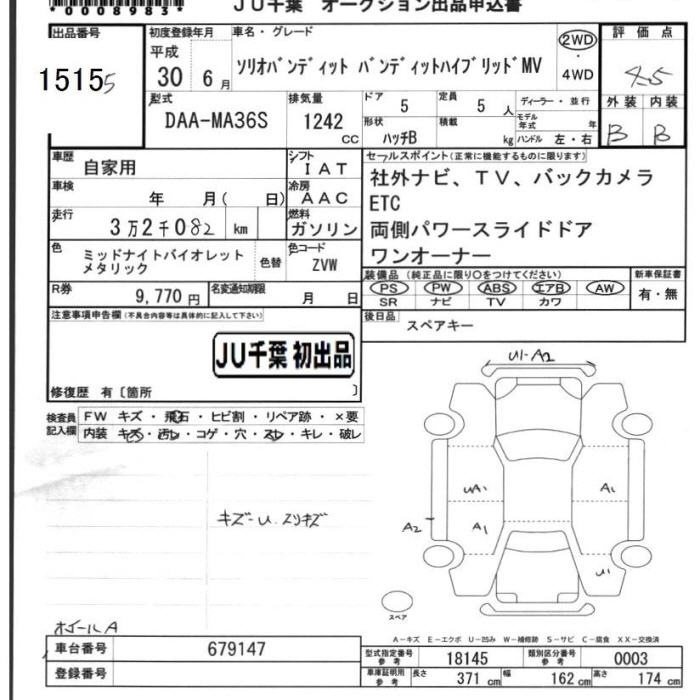 *0008983*
JU千葉 オークション出品申込書
出品番号
15155
初度登録年月
平成
30年 6月
車名・グレード
ソリオバンディット バンディットハイブリッドMV
2WD
・
4WD
評価点
4.5
外装 内装
B B
型式
DAA-MA36S
排気量
1242
cc
ドア
5
定員
5 人
ディーラー・並行
形状
ハッチB
積載
kg
モデル年式 年
ハンドル 左・右
車歴
自家用
シフト
IAT
車検
年 月( 日)
冷房
AAC
走行
3万2千082 km
燃料
ガソリン
色
ミッドナイトバイオレット
メタリック
色替
色コード
ZVW
R券
9,770 円
名変通知期限
月 日
セールスポイント(正常に機能するものに限ります)
社外ナビ、TV、バックカメラ
ETC
両側パワースライドドア
ワンオーナー
装備品 (純正品に限り○をつけてください)
PS PW ABS エアB AW
SR ナビ TV カワ
新車保証書
有・無
後日品
スペアキー
注意事項申告欄(不具合内容等は具体的に記入して下さい)
JU千葉 初出品
修復歴 有〔箇所 〕
検査員記入欄
FW キズ・飛石・ヒビ割・リペア跡・×要
内装 キズ・汚レ・コゲ・穴・スレ・キレ・破レ
キズーU.スリキズ
U1-A2
UA1
A1
A2
A1
U1
スペア
A-キズ E-エクボ U-凹み W-補修跡 S-サビ C-腐食 XX-交換済
ホイールA
車台番号 679147
登録番号
型式指定番号参考 18145
類別区分番号参考 0003
車庫証明用参考
長さ 371 cm
幅 162 cm
高さ 174 cm